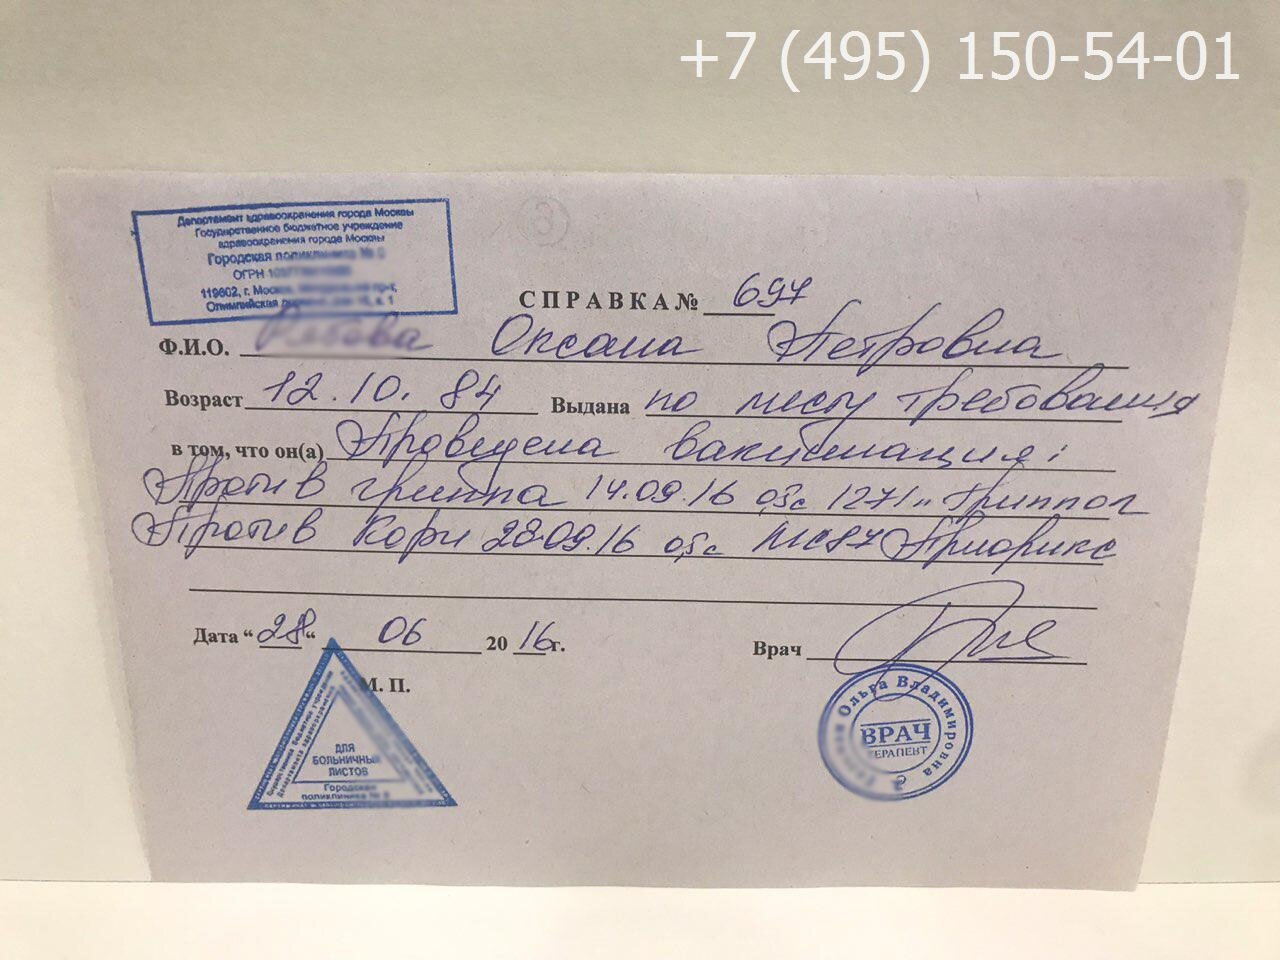 +7 (495) 150-54-01
Департамент здравоохранения города Москвы
Государственное бюджетное учреждение
здравоохранения города Москвы
Городская поликлиника №
ОГРН
119602, г. Москва,
Олимпийская
СПРАВКА № 697
Ф.И.О. Оксана Петровна
Возраст 12.10.84 Выдана по месту требования
в том, что он(а) Проведена вакцинация:
Против гриппа 14.09.16 0,5 с 1271" Гриппол
Против Кори 28.09.16 0,5 с МС87 Приорикс
Дата "28" 06 2016г. Врач
М. П.
ДЛЯ
БОЛЬНИЧНЫХ
ЛИСТОВ
Городская
поликлиника №
Ольга Владимировна
ВРАЧ
ТЕРАПЕВТ